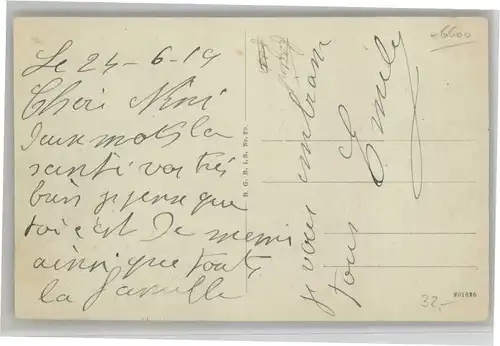 Le 24-6-19
Cheri Nini
deux mots la
santé va très
bien je pense que
toi c'est De meme
ainsi que toute
la famille
je vous embrasse
tous
Emile
6600
32.-